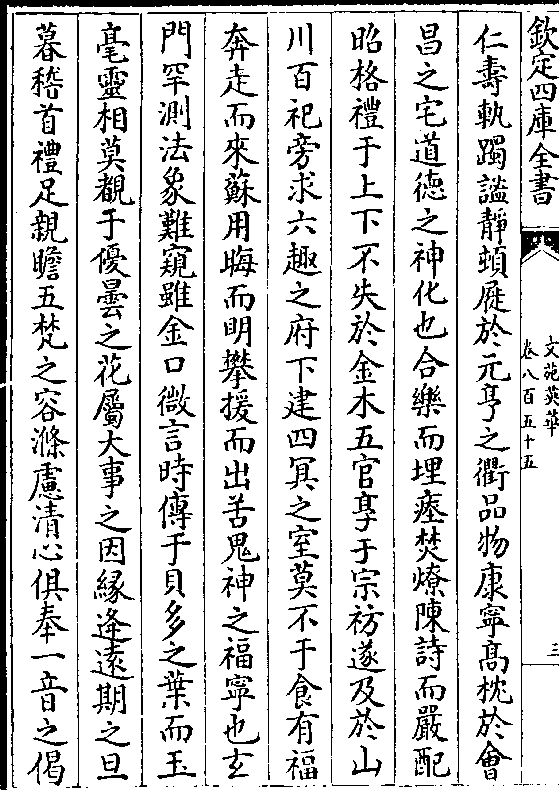 欽定四庫全書
文苑英華
卷八百五十五
三
仁壽軌躅謐靜頓屣於元亨之衢品物康寧高枕於會
昌之宅道德之神化也合樂而埋瘞焚燎陳詩而嚴配
昭格禮于上下不失於金木五官享于宗祊遂及於山
川百祀旁求六趣之府下建四冥之室莫不于食有福
奔走而來蘇用晦而明攀援而出苦鬼神之福寧也玄
門罕測法象難窺雖金口微言時傳于貝多之葉而玉
毫靈相莫覩于優曇之花屬大事之因緣逢遠期之旦
暮稽首禮足親瞻五梵之容滌慮清心俱奉一音之偈